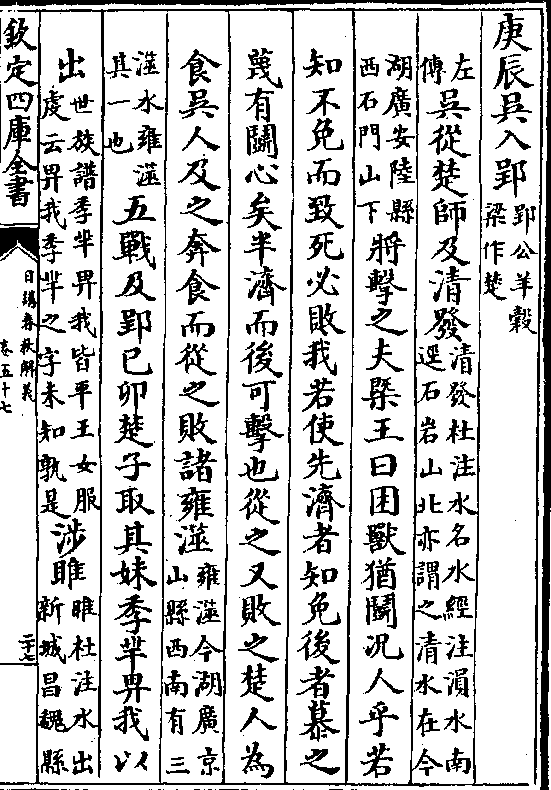 庚辰吳入郢郢公羊穀梁作楚
左傳吳從楚師及清發清發杜注水名水經注溳水南逕石岩山北亦謂之清水在今
湖廣安陸縣西石門山下將擊之夫槩王曰困獸猶鬬況人乎若
知不免而致死必敗我若使先濟者知免後者慕之
蔑有鬬心矣半濟而後可擊也從之又敗之楚人為
食吳人及之奔食而從之敗諸雍澨雍澨今湖廣京山縣西南有三
澨水雍澨其一也五戰及郢己卯楚子取其妹季羋畀我以
出世族譜季羋畀我皆平王女服虔云畀我季羋之字未知孰是涉睢睢杜注水出新城昌魏縣
欽定四庫全書
日講春秋解義
卷五十七
二十七